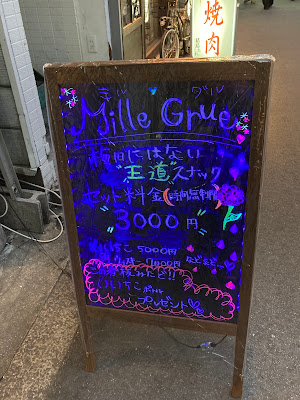 焼肉
ミル グル
Mille Grue
梅田にはない
"王道"スナック
セット料金(時間無制限)
3000円
いいちこ 5000円
7000円 などなど…
いいちこボトル
プレゼント♡